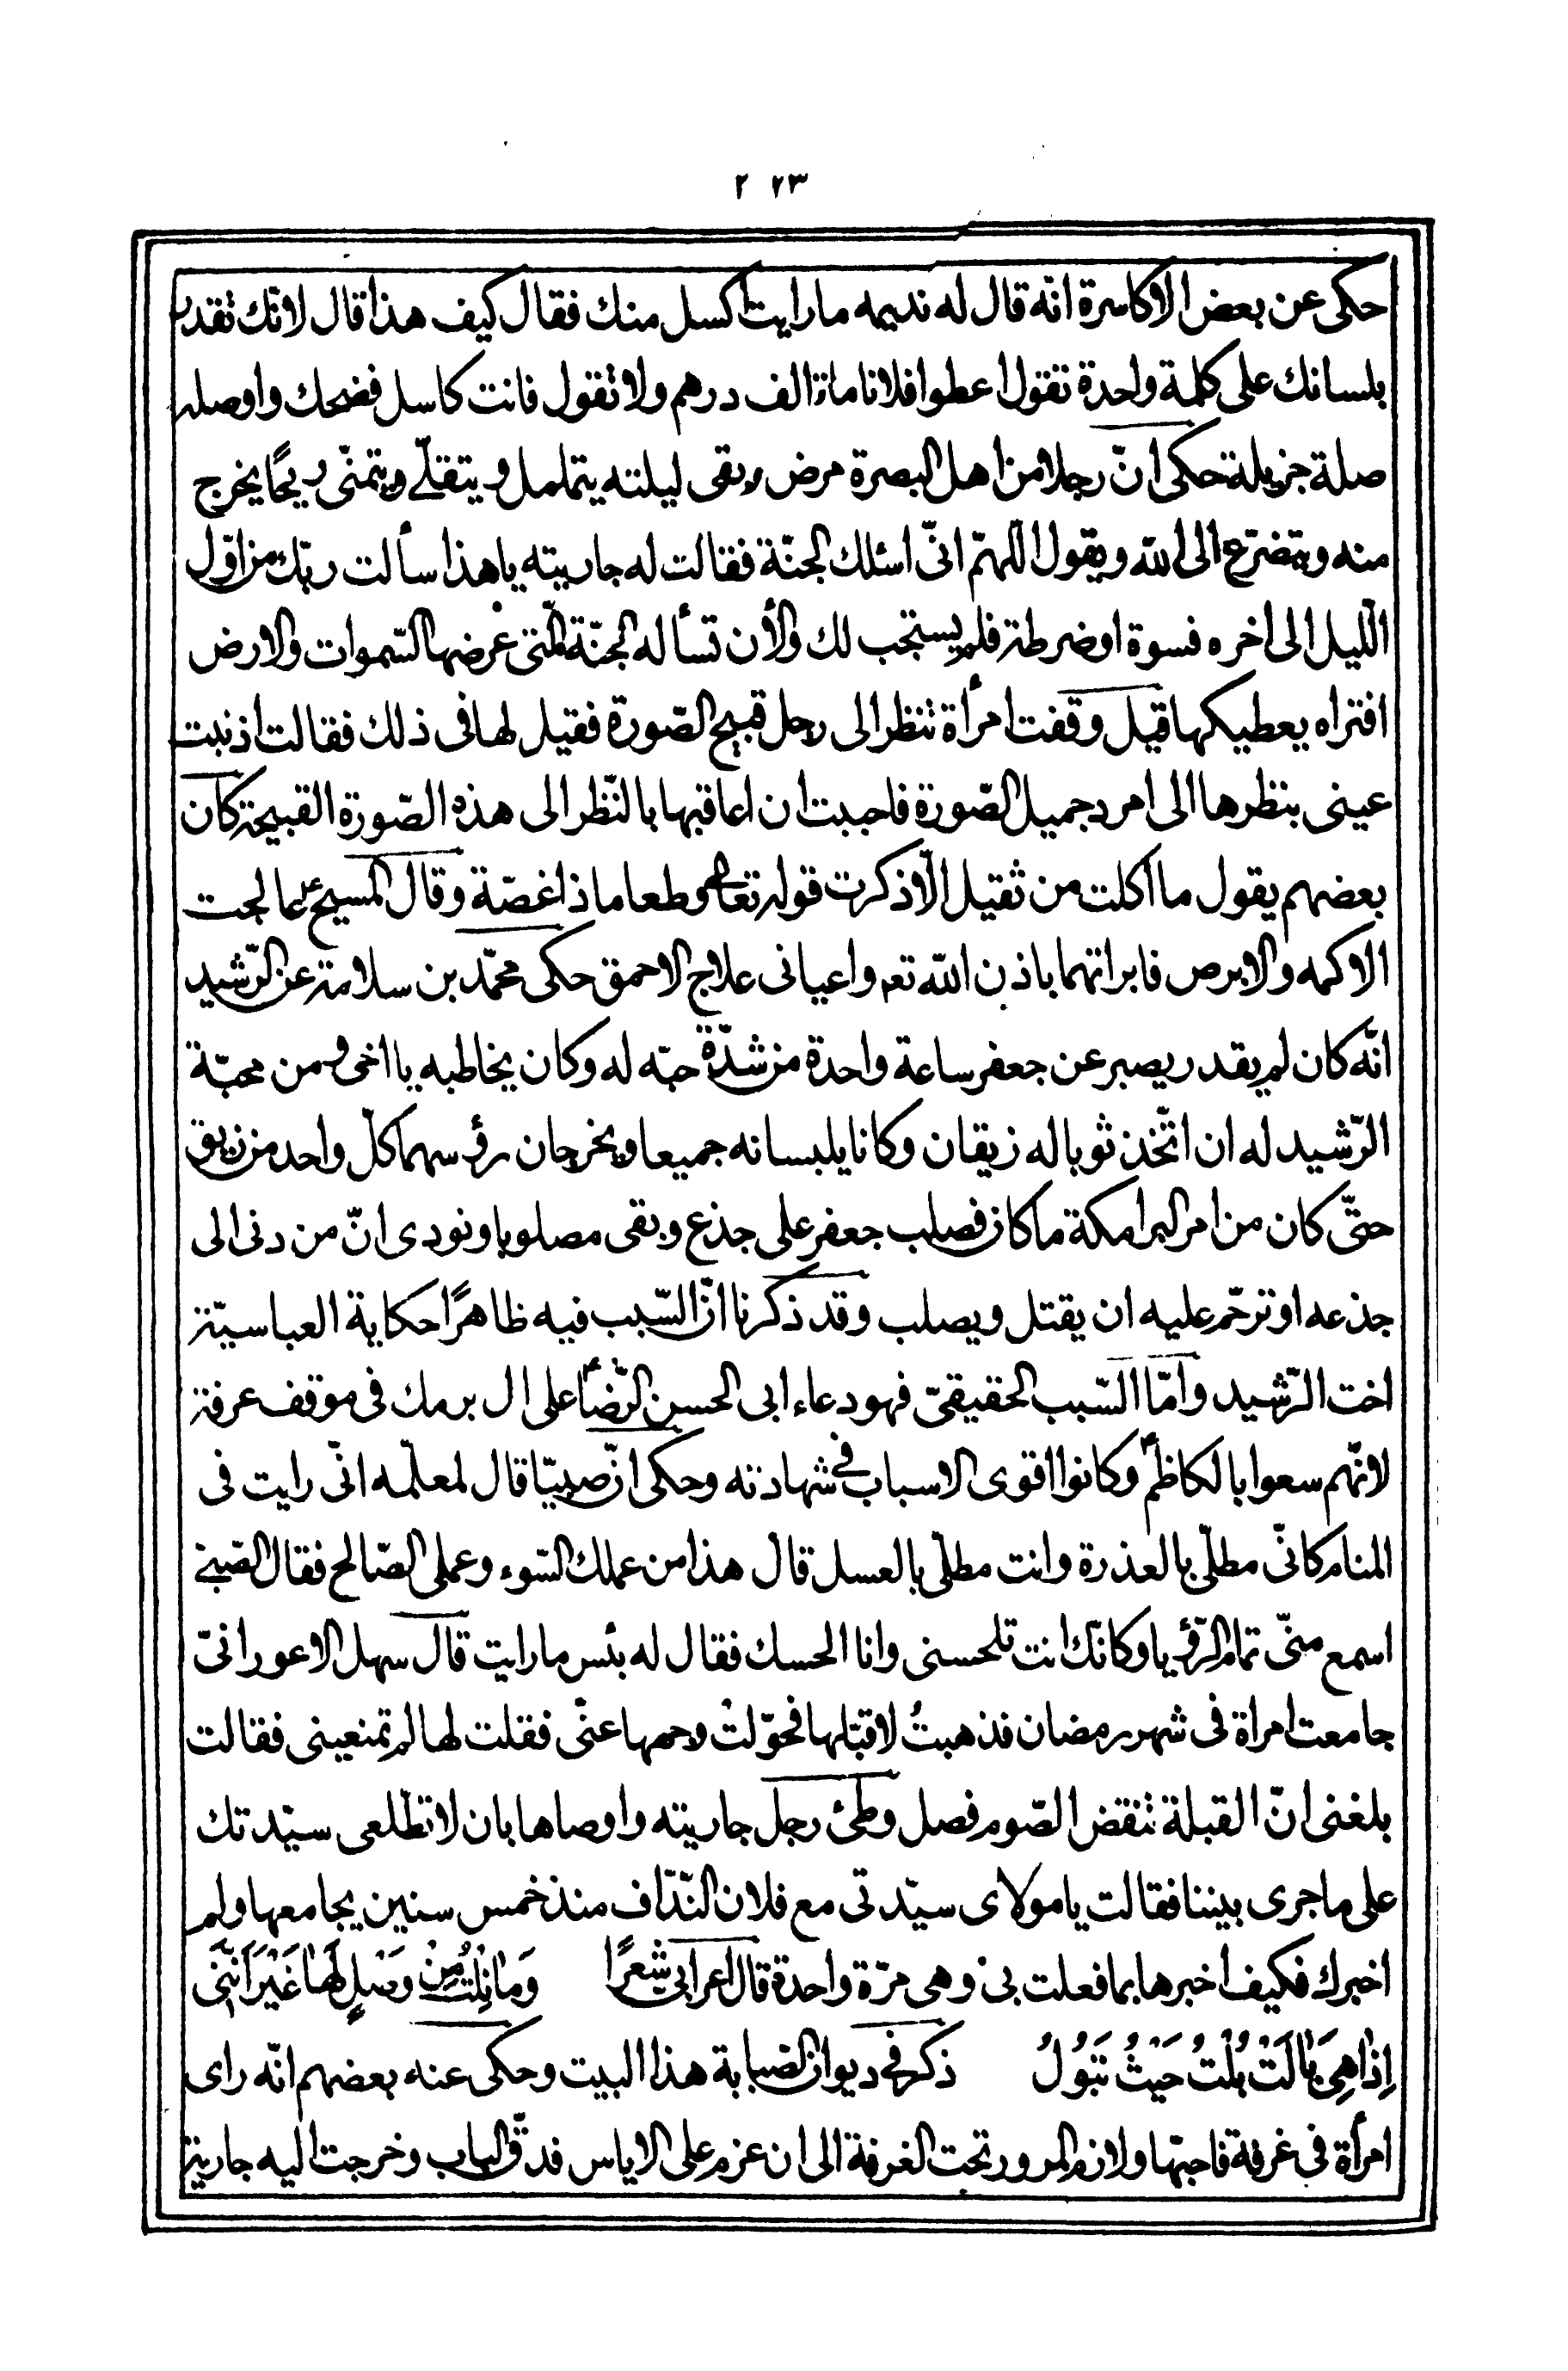 ٢٢٣
حكى عن بعض الاكاسرة انّه قال له نديمه ما رايت اكسل منك فقال كيف هذا قال لانّك تقدر
بلسانك على كلمة واحدة تقول اعطوا فلانا ماة الف درهم ولا تقول فانت كاسل فضحك واوصله
صلة جزيلة حكى انّ رجلا من اهل البصرة مرض وبقى ليلته يتململ ويتقلّى ويتمنّى ريحًا يخرج
منه ويتضرّع الى الله ويقول اللّهمّ انّى اسئلك الجنّة فقالت له جاريته يا هذا سألت ربّك من اوّل
اللّيل الى اخره فسوة او ضرطة فلم يستجب لك والأن تسأله الجنّة الّتى عرضها السّموات والارض
افتراه يعطيكها قيل وقفت امرأة تنظر الى رجل قبيح الصّورة فقيل لها فى ذلك فقالت اذنبت
عينى بنظرها الى امرد جميل الصّورة فاحببت ان اعاقبها بالنّظر الى هذه الصّورة القبيحة كان
بعضهم يقول ما اكلت من ثقيل الّا ذكرت قوله تعالى وطعاما ذا غصّة وقال المسيح ع عالجت
الاكمه والابرص فابراتهما باذن الله تعم واعيانى علاج الاحمق حكى محمّد بن سلامة عن الرّشيد
انّه كان لم يقدر يصبر عن جعفر ساعة واحدة من شدّة حبّه له وكان يخاطبه يا اخى ومن محبّة
الرّشيد له ان اتّخذ ثوبا له زيقان وكانا يلبسانه جميعا ويخرجان رؤسهما كلّ واحد من زيق
حتّى كان من امر البرامكة ما كان فصلب جعفر على جذع وبقى مصلوبا ونودى انّ من دنى الى
جذعه او ترحّم عليه ان يقتل ويصلب وقد ذكرنا انّ السّبب فيه ظاهرًا حكاية العباسيّة
اخت الرّشيد وامّا السّبب الحقيقىّ فهو دعاء ابى الحسن الرّضا ع على ال برمك فى موقف عرفة
لانّهم سعوا بالكاظم ع وكانوا اقوى الاسباب فى شهادته وحكى انّ صبيّا قال لمعلّمه انّى رايت فى
المنام كانّى مطلّى بالعذرة وانت مطلّى بالعسل قال هذا من عملك السّوء وعملى الصّالح فقال الصّبى
اسمع منّى تمام الرّؤيا وكانّك انت تلحسنى وانا الحسك فقال له بئس ما رايت قال سهل الاعور انّى
جامعت امراة فى شهر رمضان فذهبتُ لاقبّلها فحوّلت وجهها عنّى فقلت لها لم تمنعينى فقالت
بلغنى انّ القبلة تنقض الصّوم فصل وطئ رجل جاريته واوصاها بان لا تطّلعى سيّدتك
على ما جرى بيننا فقالت يا مولاى سيّدتى مع فلان النّدّاف منذ خمس سنين يجامعها ولم
اخبرك فكيف اخبرها بما فعلت بى وهى مرّة واحدة قال اعرابى شعرًا وَمَا نِلْتُ مِنْ وَصْلٍ لَهَا غَيْرَ اَنَّنِى
اِذَا هِىَ بَالَتْ بُلْتُ حَيْثُ تَبُولُ ذكر فى ديوان الصّبابة هذا البيت وحكى عنه بعضهم انّه راى
امرأة فى غرفة فاحبّها ولازم المرور تحت الغرفة الى ان عزم على الاياس فدقّ الباب وخرجت اليه جارية